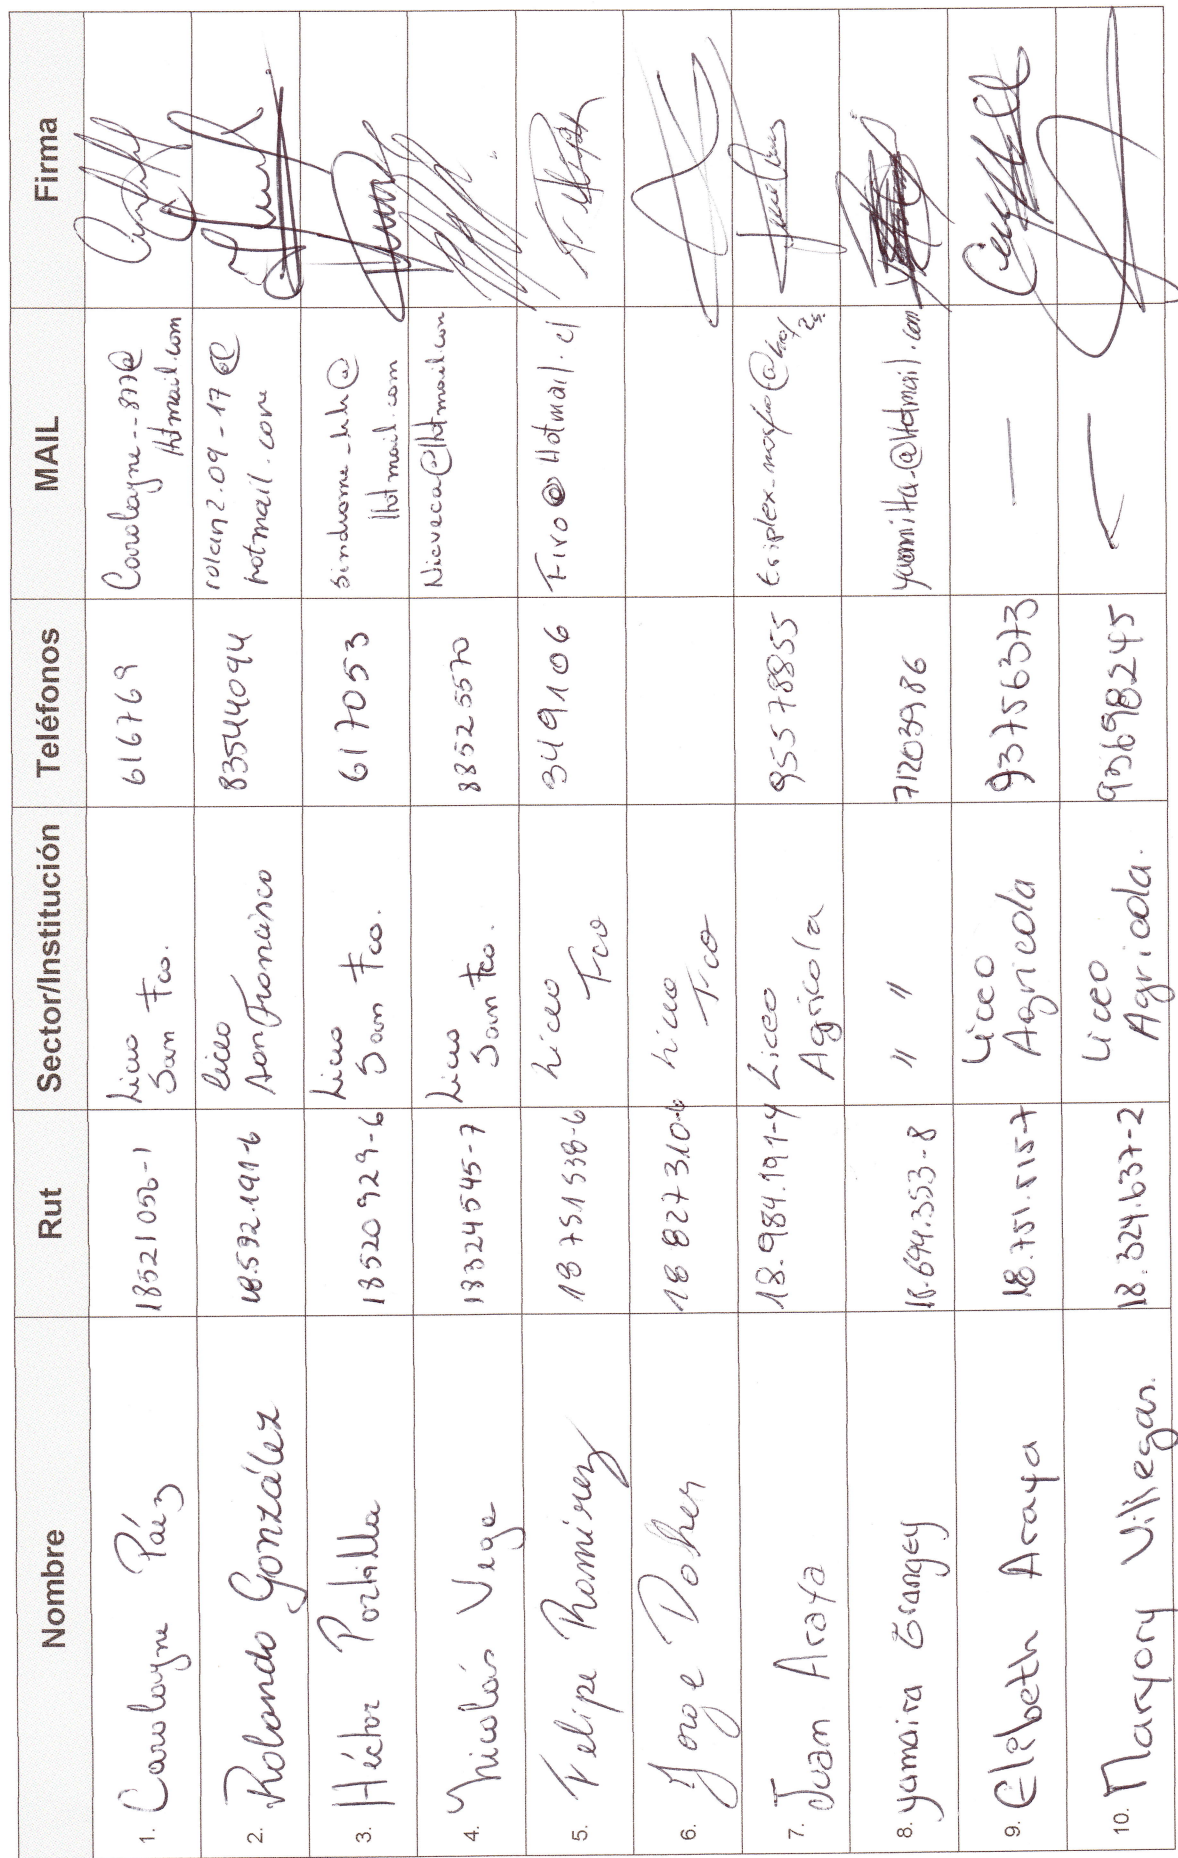 Nombre Rut Sector/Institución Teléfonos MAIL Firma
1. Carolayne Páez 18521056-1 Liceo San Fco. 616769 Carolayne--877@hotmail.com
2. Rolando González 18.592.191-6 Liceo San Francisco 83544094 rolan2.09-17@hotmail.com
3. Héctor Portilla 18520929-6 Liceo San Fco. 617053 Sindrome_hh@hotmail.com
4. Nicolás Vega 18324545-7 Liceo San Fco. 88525570 Nicveca@hotmail.com
5. Felipe Ramírez 18751538-6 Liceo Fco 349106 Firo@Hotmail.cl
6. Jorge 18827310-6 Liceo Fco
7. Juan Araya 18.984.191-4 Liceo Agrícola 95578855
8. yamaira 18.694.353-8 " " 71203986 yaamitta-@hotmail.com
9. Elibeth Araya 18.751.515-7 Liceo Agricola 93756373 —
10. Maryory Villegas. 18.324.637-2 Liceo Agricola. 93698245